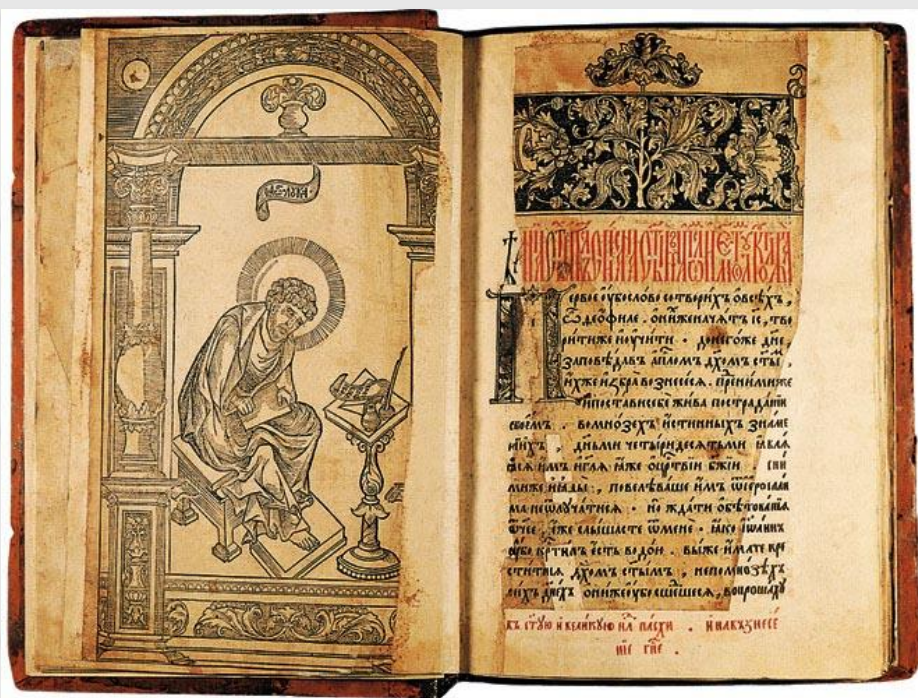 лꙋка
Первое оу҆бо слово сотворихъ ѡ҆ всѣхъ,
ѽ деѻфиле. о҆ ни́хже начѧтъ і҆с, тво
ритиже и҆ оу҆чити. до негоже дн҃е,
заповѣдавъ а҆пⷭ҇ломъ дх҃омъ ст҃ы,
и҆хже и҆збра вознесесѧ. пред̾ нимиже
и҆ постави себе жива по страданїи
своемъ. во мнозехъ и҆стинныхъ знаме
нїихъ, дньми четыридесѧтьми ꙗ҆влѧ
ꙗсѧ и҆мъ и҆ гл҃ѧ ꙗ҆же о҆ црⷭ҇твїи бж҃їи.
повелѣваше и҆мъ ѿ і҆єросали
ма не ѿлꙋчатисѧ. но ждати ѡ҆бѣтованїѧ
ѻ҆тчее, є҆же слышасте ѿ мене. ꙗ҆ко і҆ѡ҆аннъ
оу҆бо крⷭ҇тилъ є҆сть водою. вы же и҆мате кре
ститисѧ дх҃омъ ст҃ымъ, не по мнозѣхъ
сихъ дн҃ехъ ѻ҆ниже оу҆бо сшедшесѧ, вопрошахꙋ
въ ст҃ꙋю и҆ великꙋю нлⷧ҇ пасхи. и҆ на възнесе
нїе гн҃е.